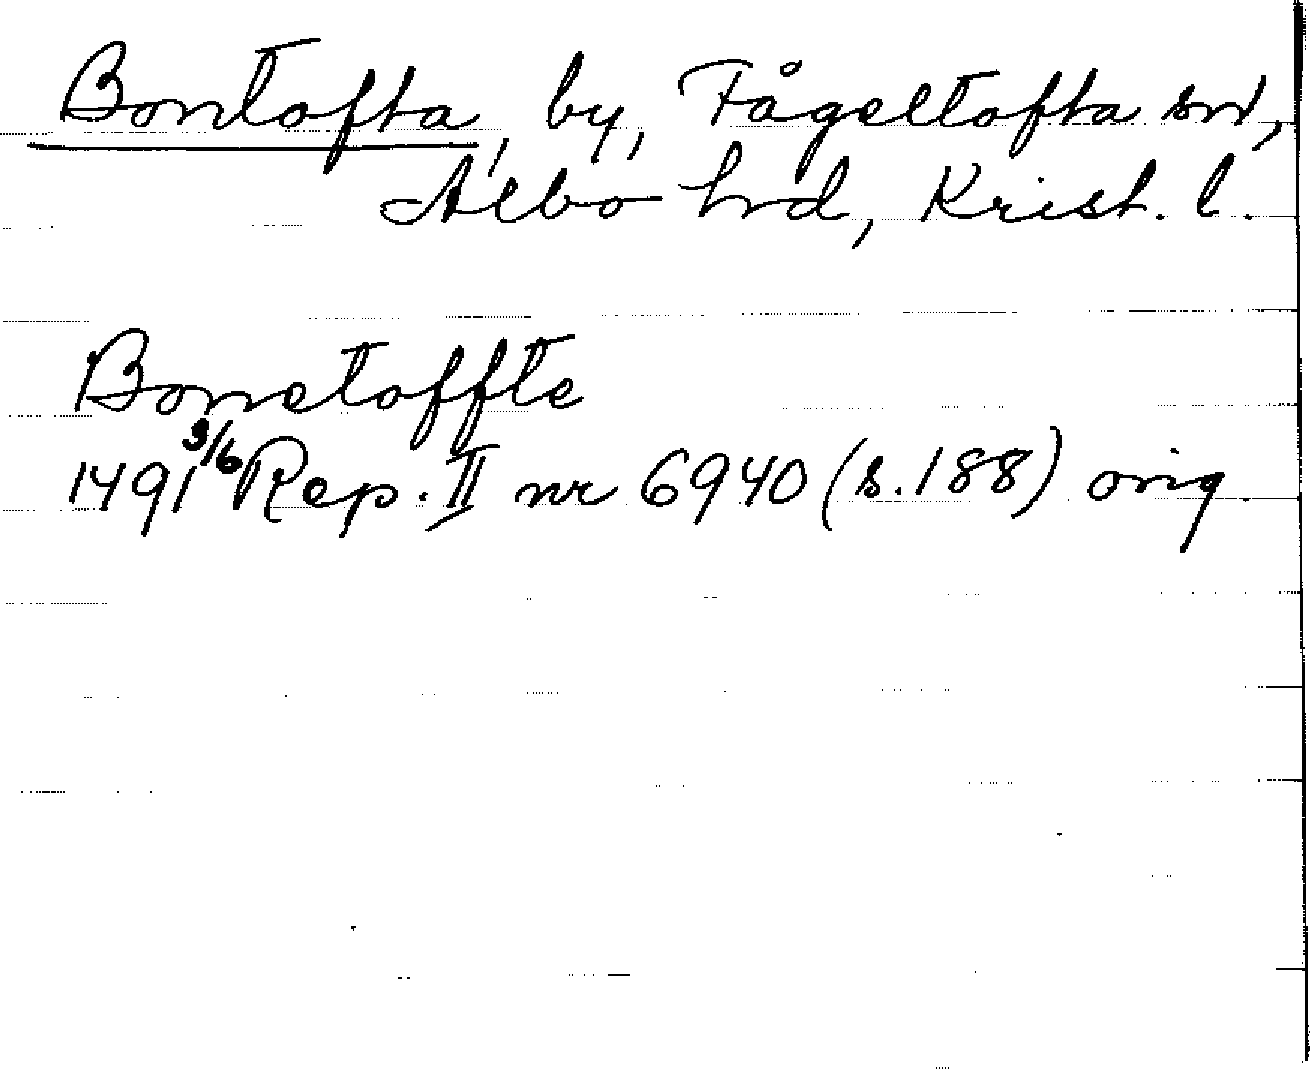 Bontofta, by, Fågeltofta sn,
Albo hrd, Krist. l.
Bonetoffte
1491 3/6 Rep. II nr 6940 (s. 188) orig.